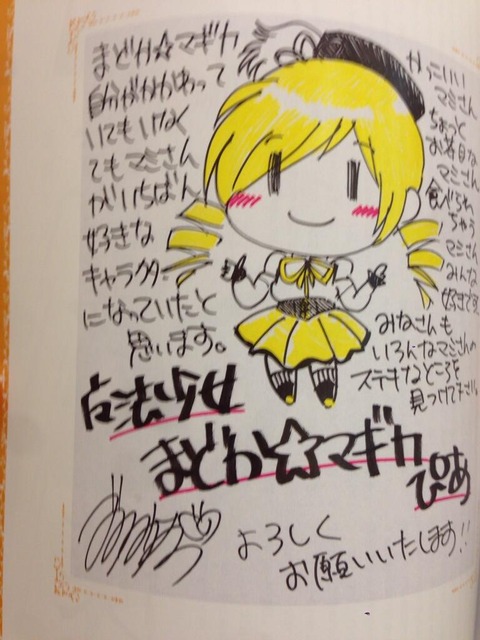 まどか☆マギカ
自分がかかわって
いてもいなく
てもマミさん
がいちばん
好きな
キャラクター
になっていたと
思います。
かっこいい
マミさん
ちょっと
お茶目な
マミさん
食べられ
ちゃう
マミさん
みんな
好きです。
みなさんも
いろんなマミさんの
ステキなところを
見つけて下さい。
魔法少女
まどか☆マギカ
ぴあ
よろしく
お願いいたします!!